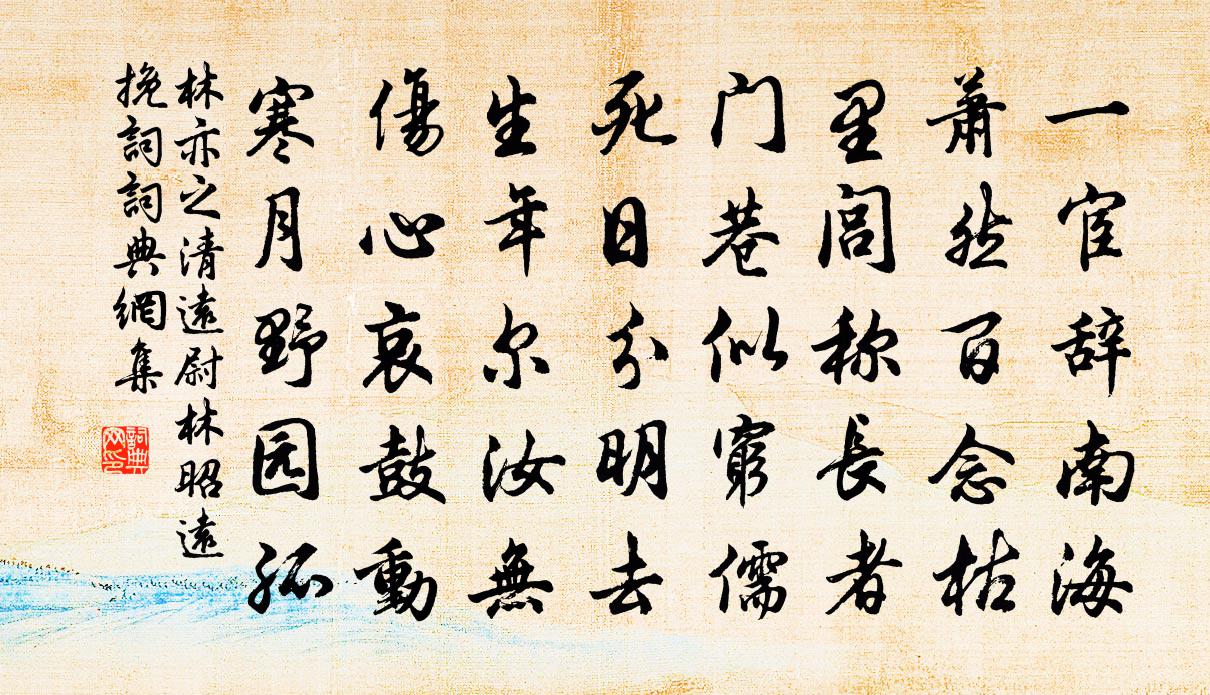 一宦辞南海
萧然百念枯
里闾称長者
门巷似窮儒
死日分明去
生年尔汝無
傷心哀鼓動
寒月野园孤
林亦之清遠尉林昭遠
挽詞詞典網集
詞典
网印